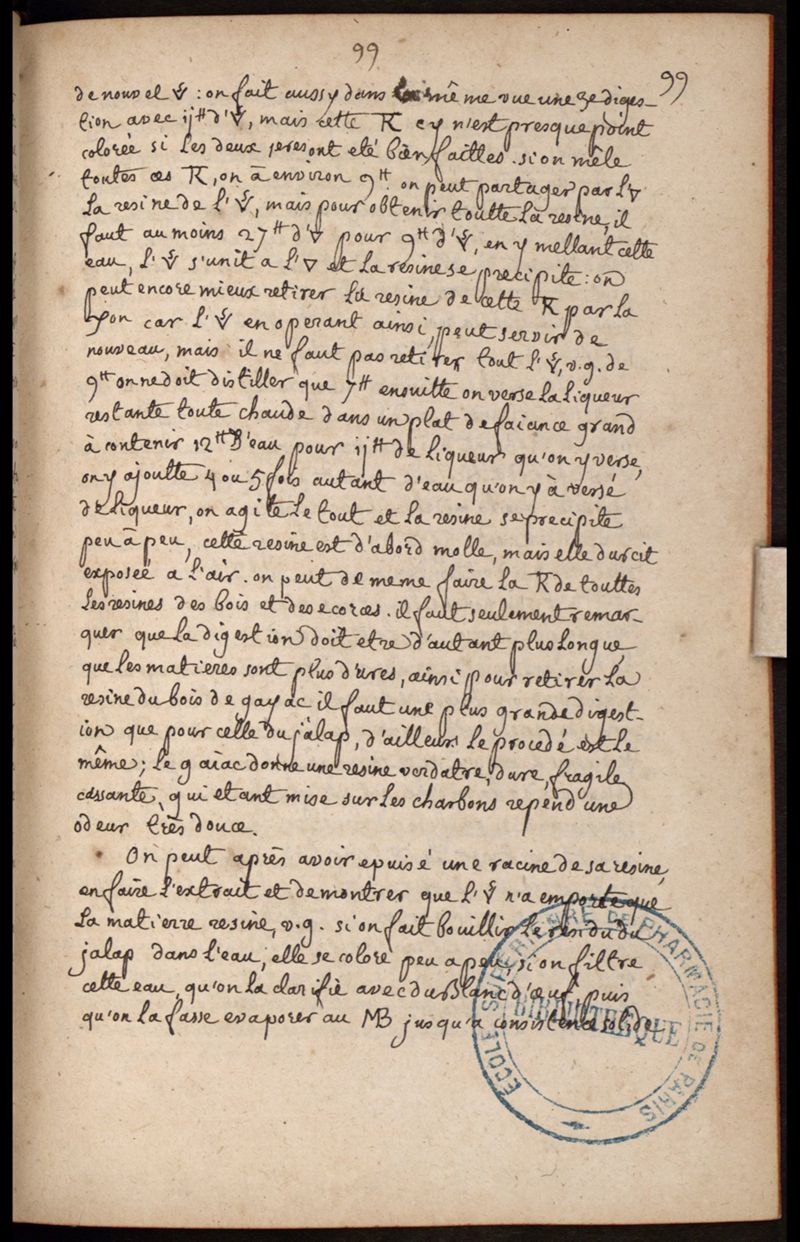 99
99
de nouvel 🜈 : on fait aussy dans la même vue une 3e diges-
tion avec ij ℔ d'🜈, mais cette R cy n'est presque point
colorée si les deux 1eres ont eté bien faittes. si on mêle
toutes ces R, on à environ 9 ℔. on peut partager par l'▽
la resine de l'🜈, mais pour obtenir toutte la resine, il
faut au moins 27 ℔ d'▽ pour 9 ℔ d'🜈, en y mellant cette
eau, l'🜈 s'unit a l'▽ et la resine se precipite : on
peut encore mieux retirer la resine de cette R par la
on car l'🜈 en operant ainsi, peut servir de
nouveau, mais il ne faut pas retirer tout l'🜈, v.g. de
9 ℔ on ne doit distiller que 7 ℔ ensuitte on verse la liqueur
restante toute chaude dans un plat de faiance grand
à contenir 12 ℔ d'eau pour ij ℔ de liqueur qu'on y verse,
on y ajoutte 4 ou 5 fois autant d'eau qu'on y à versé
de liqueur, on agite le tout et la resine se precipite
peu à peu, cette resine est d'abord molle, mais elle durcit
exposeé a l'air. on peut de meme faire la R de touttes
les resines des bois et des ecorces. il faut seulement remar-
quer que la digestion doit etre d'autant plus longue,
que les matieres sont plus dures, ainsi pour retirer la
resine du bois de gayac il faut une plus grande digest-
ion que pour celle du jalap, d'ailleurs le procedé est le
même; le gaïac donne une resine verdatre, dure, fragile
cassante, qui etant mise sur les charbons repend une
odeur très douce.
On peut après avoir epuisé une racine de sa resine,
en faire l'extrait et demontrer que l'🜈 n'a emporté que
la matierre resine, v.g. si on fait bouillir le residu du
jalap dans l'eau, elle se colore peu a peu, si on filtre
cette eau, qu'on la clarifie avec du Blanc d'œuf, puis
qu'on la fasse evaporer au MB jusqu'a consistence solide.
ECOLE SUPERIEURE DE PHARMACIE DE PARIS
BIBLIOTHEQUE